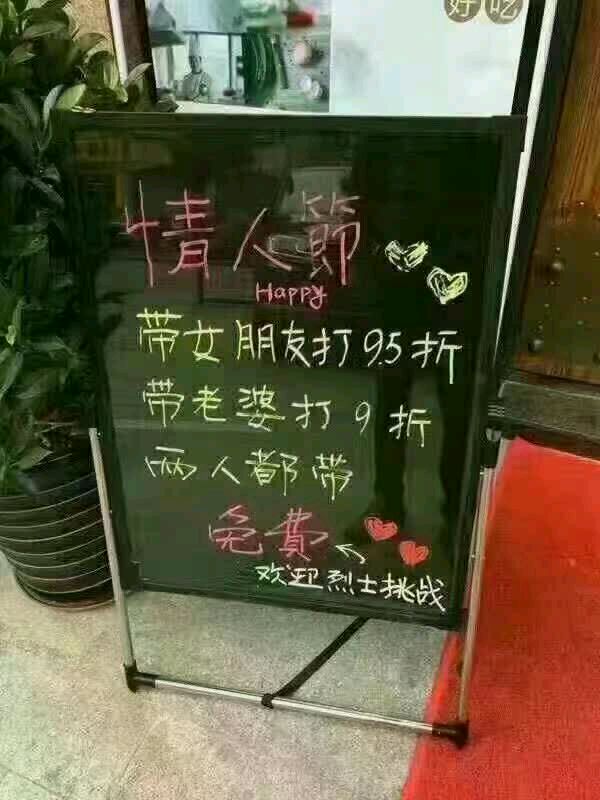 好吃
情人節
Happy
带女朋友打9.5折
带老婆打9折
两人都带
免費
欢迎烈士挑战